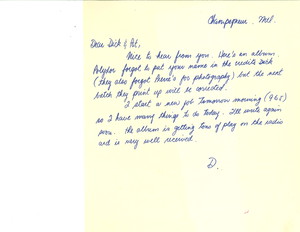 Dear Dick & Pat,
Nice to hear from you. Here's an album
Polydor forgot to put your name in the credits Dick
(they also forgot Pierre's for photography) but the next
batch they print up will be corrected.
I start a new job tomorrow morning (9 to 5)
so I have many things to do today. I'll write again
soon. The album is getting tons of play on the radio
and is very well received.
D.